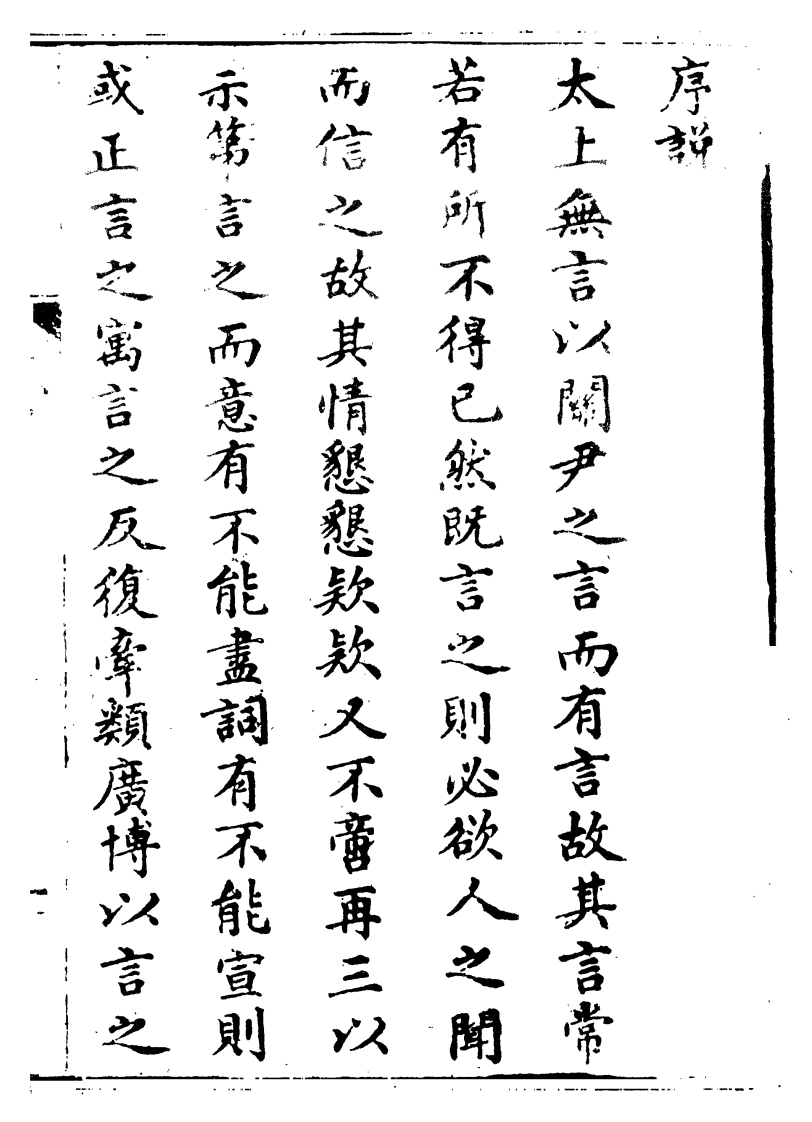 序説
太上無言以關尹之言而有言故其言常
若有所不得已然既言之則必欲人之聞
而信之故其情懇懇欵欵又不啻再三以
示第言之而意有不能盡詞有不能宣則
或正言之寓言之反復牽類廣博以言之